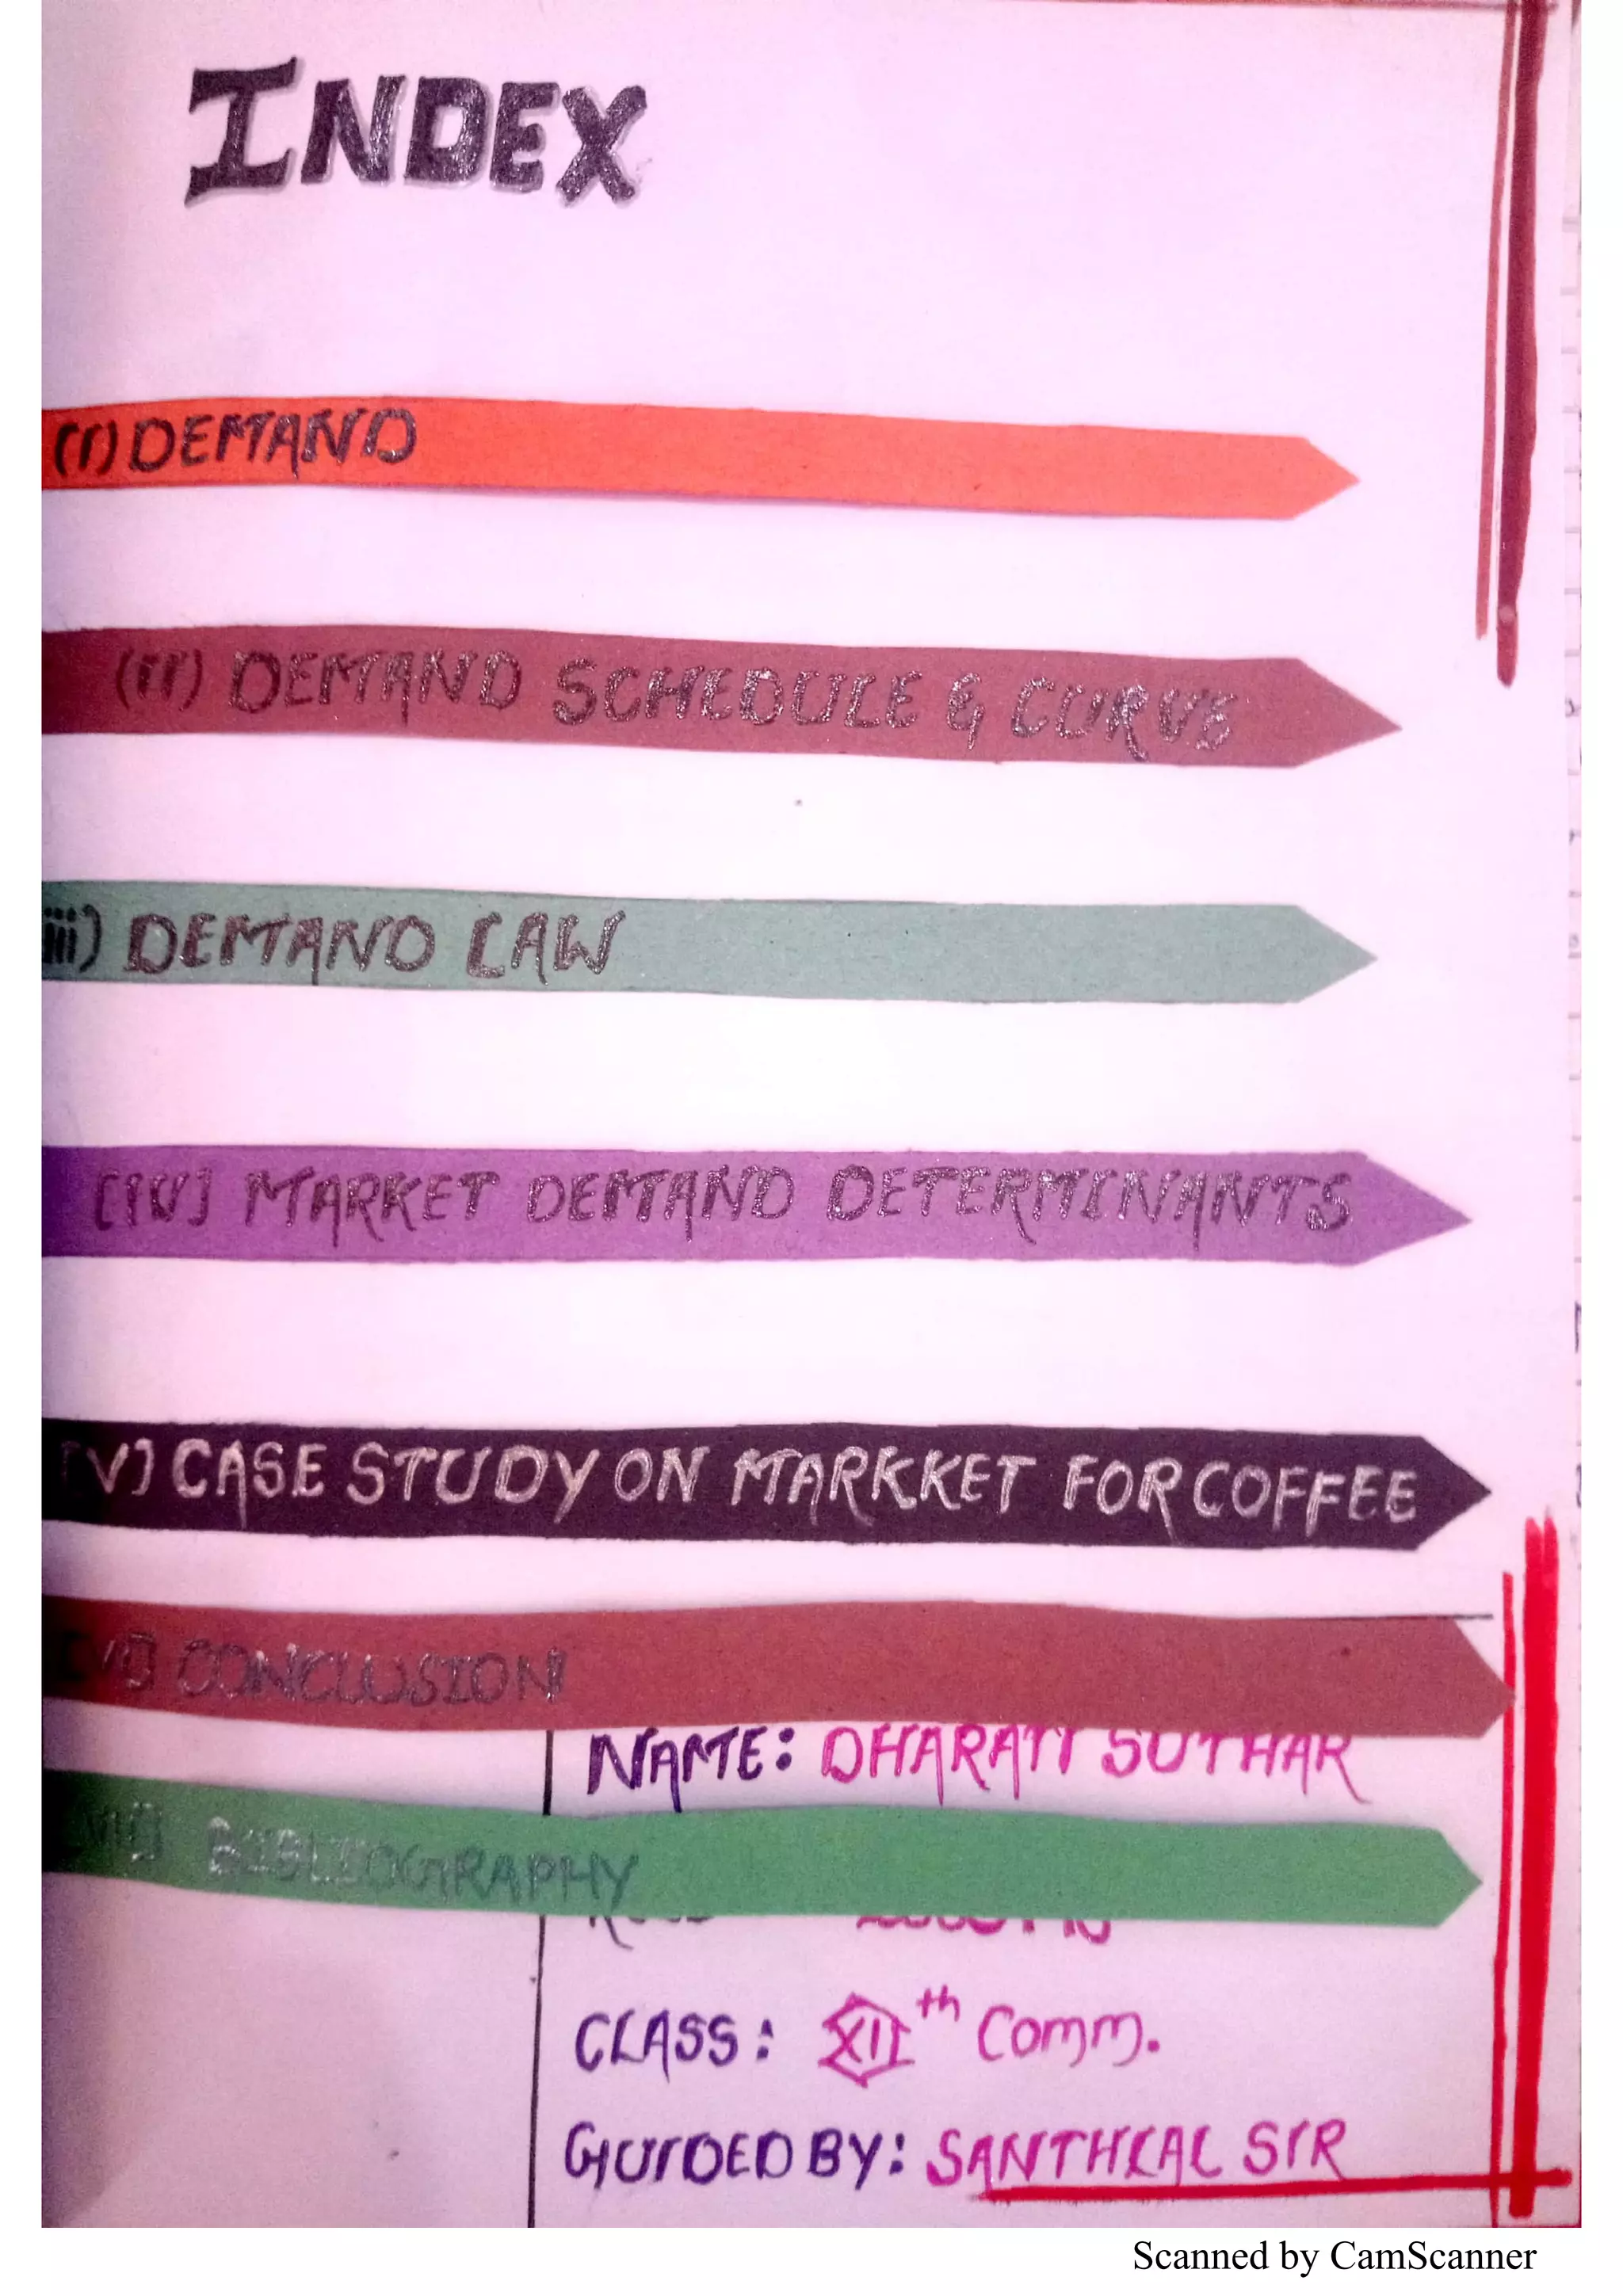 INDEX
(I) DEMAND
(II) DEMAND SCHEDULE & CURVE
iii) DEMAND LAW
[IV] MARKET DEMAND DETERMINANTS
[V] CASE STUDY ON MARKKET FOR COFFEE
[VI] CONCLUSION
NAME: DHARATI SUTHAR
VII] BIBLIOGRAPHY
CLASS: XIIth Comm.
GUIDED BY: SANTHLAL SIR
Scanned by CamScanner